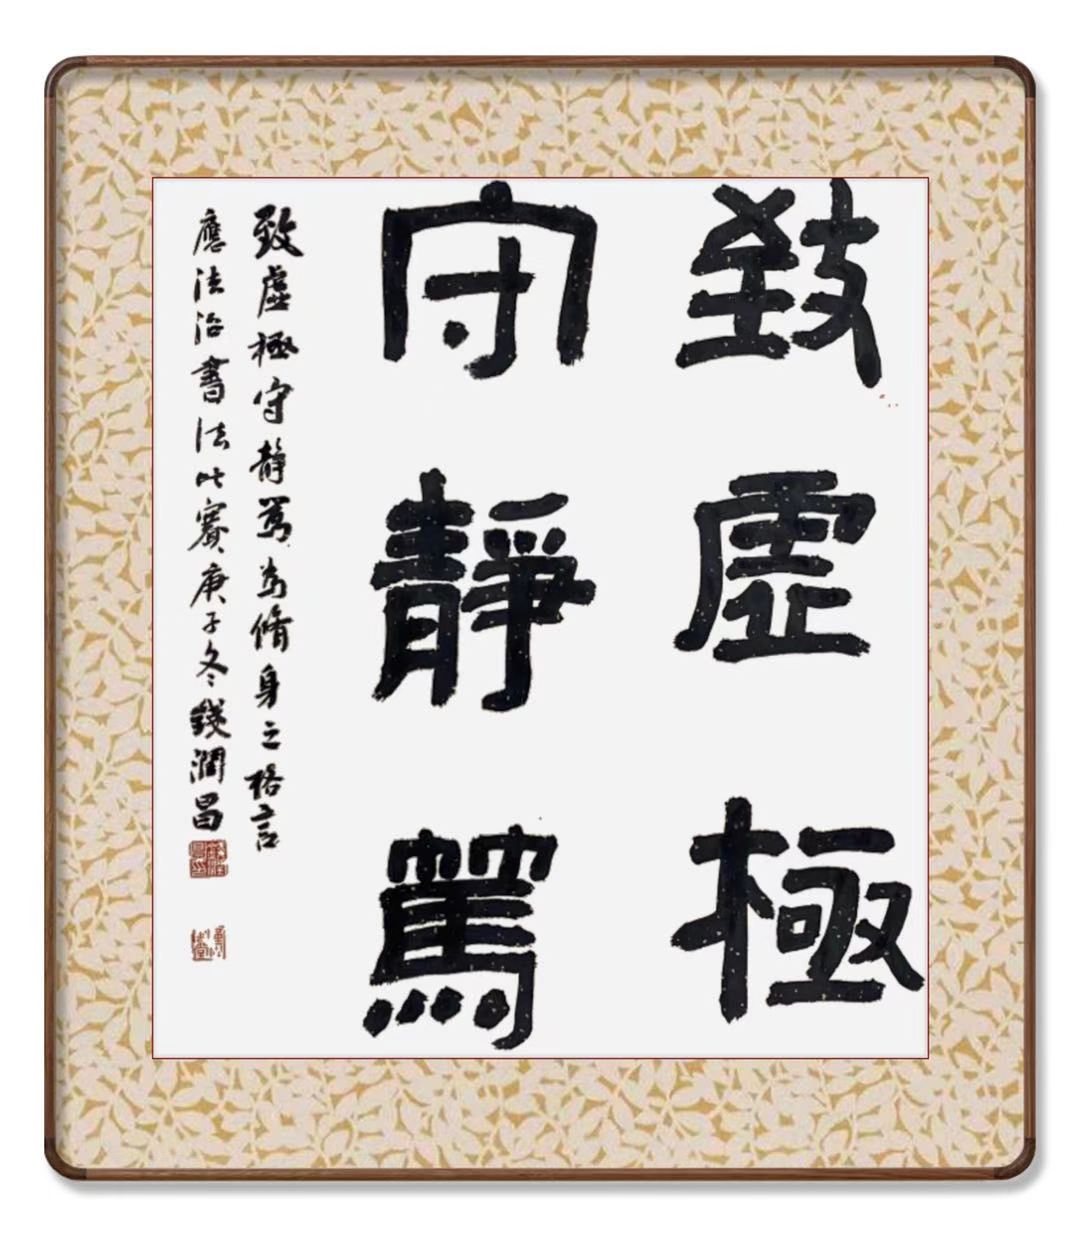 致虛極
守靜篤
致虛極守靜篤為脩身之格言
應法治書法比賽庚子冬錢潤昌